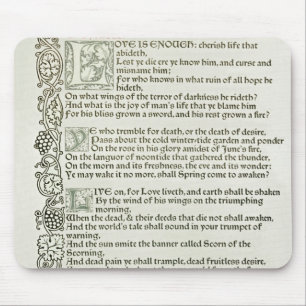 LOVE IS ENOUGH: cherish life that
abideth,
Lest ye die ere ye know him, and curse and
misname him;
For who knows in what ruin of all hope he
hideth,
On what wings of the terror of darkness he rideth?
And what is the joy of man's life that ye blame him
For his bliss grown a sword, and his rest grown a fire?
YE who tremble for death, or the death of desire,
Pass about the cold winter-tide garden and ponder
On the rose in his glory amidst of June's fire,
On the languor of noontide that gathered the thunder,
On the morn and its freshness, the eve and its wonder;
Ye may wake it no more, shall Spring come to awaken?
LIVE on, for Love liveth, and earth shall be shaken
By the wind of his wings on the triumphing
morning,
When the dead, & their deeds that die not shall awaken,
And the world's tale shall sound in your trumpet of
warning,
And the sun smite the banner called Scorn of the
Scorning,
And dead pain ye shall trample, dead fruitless desire,